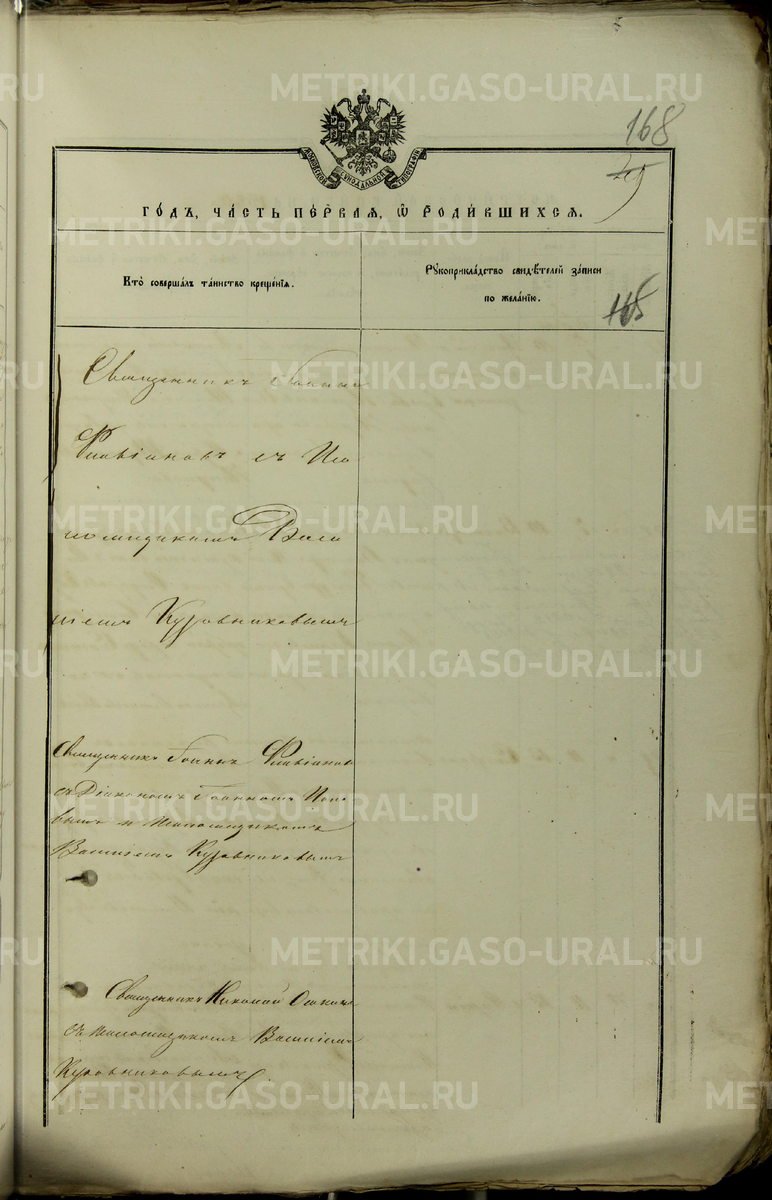 168
МОСКОВСКОЙ СѴНОДАЛЬНОЙ ТИПОГРАФІИ
ГО́ДЪ, ЧА́СТЬ ПЕ́РВАЯ, Ѡ҆ РОДИ́ВШИХСЯ.
Кто̀ соверша́лъ та́инство креще́нїѧ.
Рꙋкоприкла́дство свидѣ́телей за́писи
по жела́нїю.
168
Священникъ Іоаннъ
Флавіановъ съ Пса
ломщикомъ Васи
ліемъ Куровниковымъ
Священникъ Іоаннъ Флавіановъ
съ Діакономъ Іоанномъ Попо
вымъ и Псаломщикомъ
Василіемъ Куровниковымъ
Священникъ Николай
съ Псаломщикомъ Василіемъ
Куровниковымъ.
METRIKI.GASO-URAL.RU